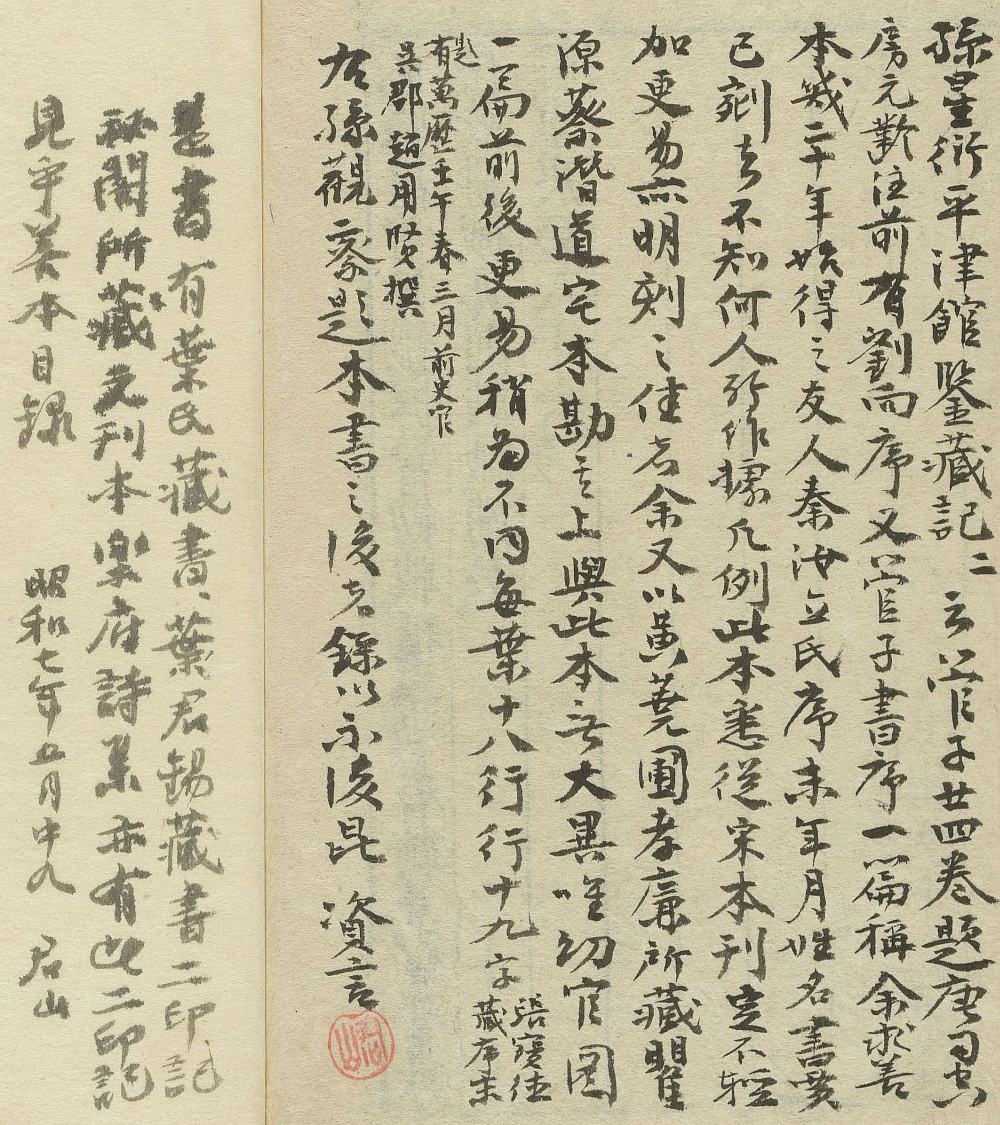 孫星衍平津館鑒藏記二 云管子廿四卷題唐司空
房元齡注前有劉向序又管子書序一篇稱余求善
本幾二十年始得之友人秦汝立氏序末年月姓名書賈
已剜去不知何人所作據凡例此本悉從宋本刊定不輕
加更易亦明刻之佳者余又以黃蕘圃孝廉所藏瞿
源蔡潛道宅本勘之上與此本無大異唯幼官圖
一篇前後更易稍為不同每葉十八行行十九字
張寔佳
藏序末
題有萬歷壬午春三月前史官
吳郡趙用賢撰
右孫觀察題本書之後者錄以示後昆 資言
是書有葉氏藏書、葉君錫藏書二印記
秘閣所藏元刊本樂府詩集亦有此二印記
見宋善本目録 昭和七年五月中九 君山